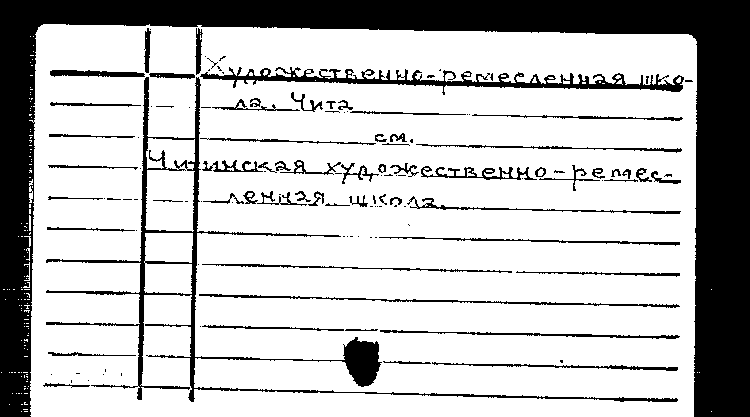 Художественно-ремесленная шко-
ла. Чита
см.
Читинская художественно-ремес-
ленная школа.